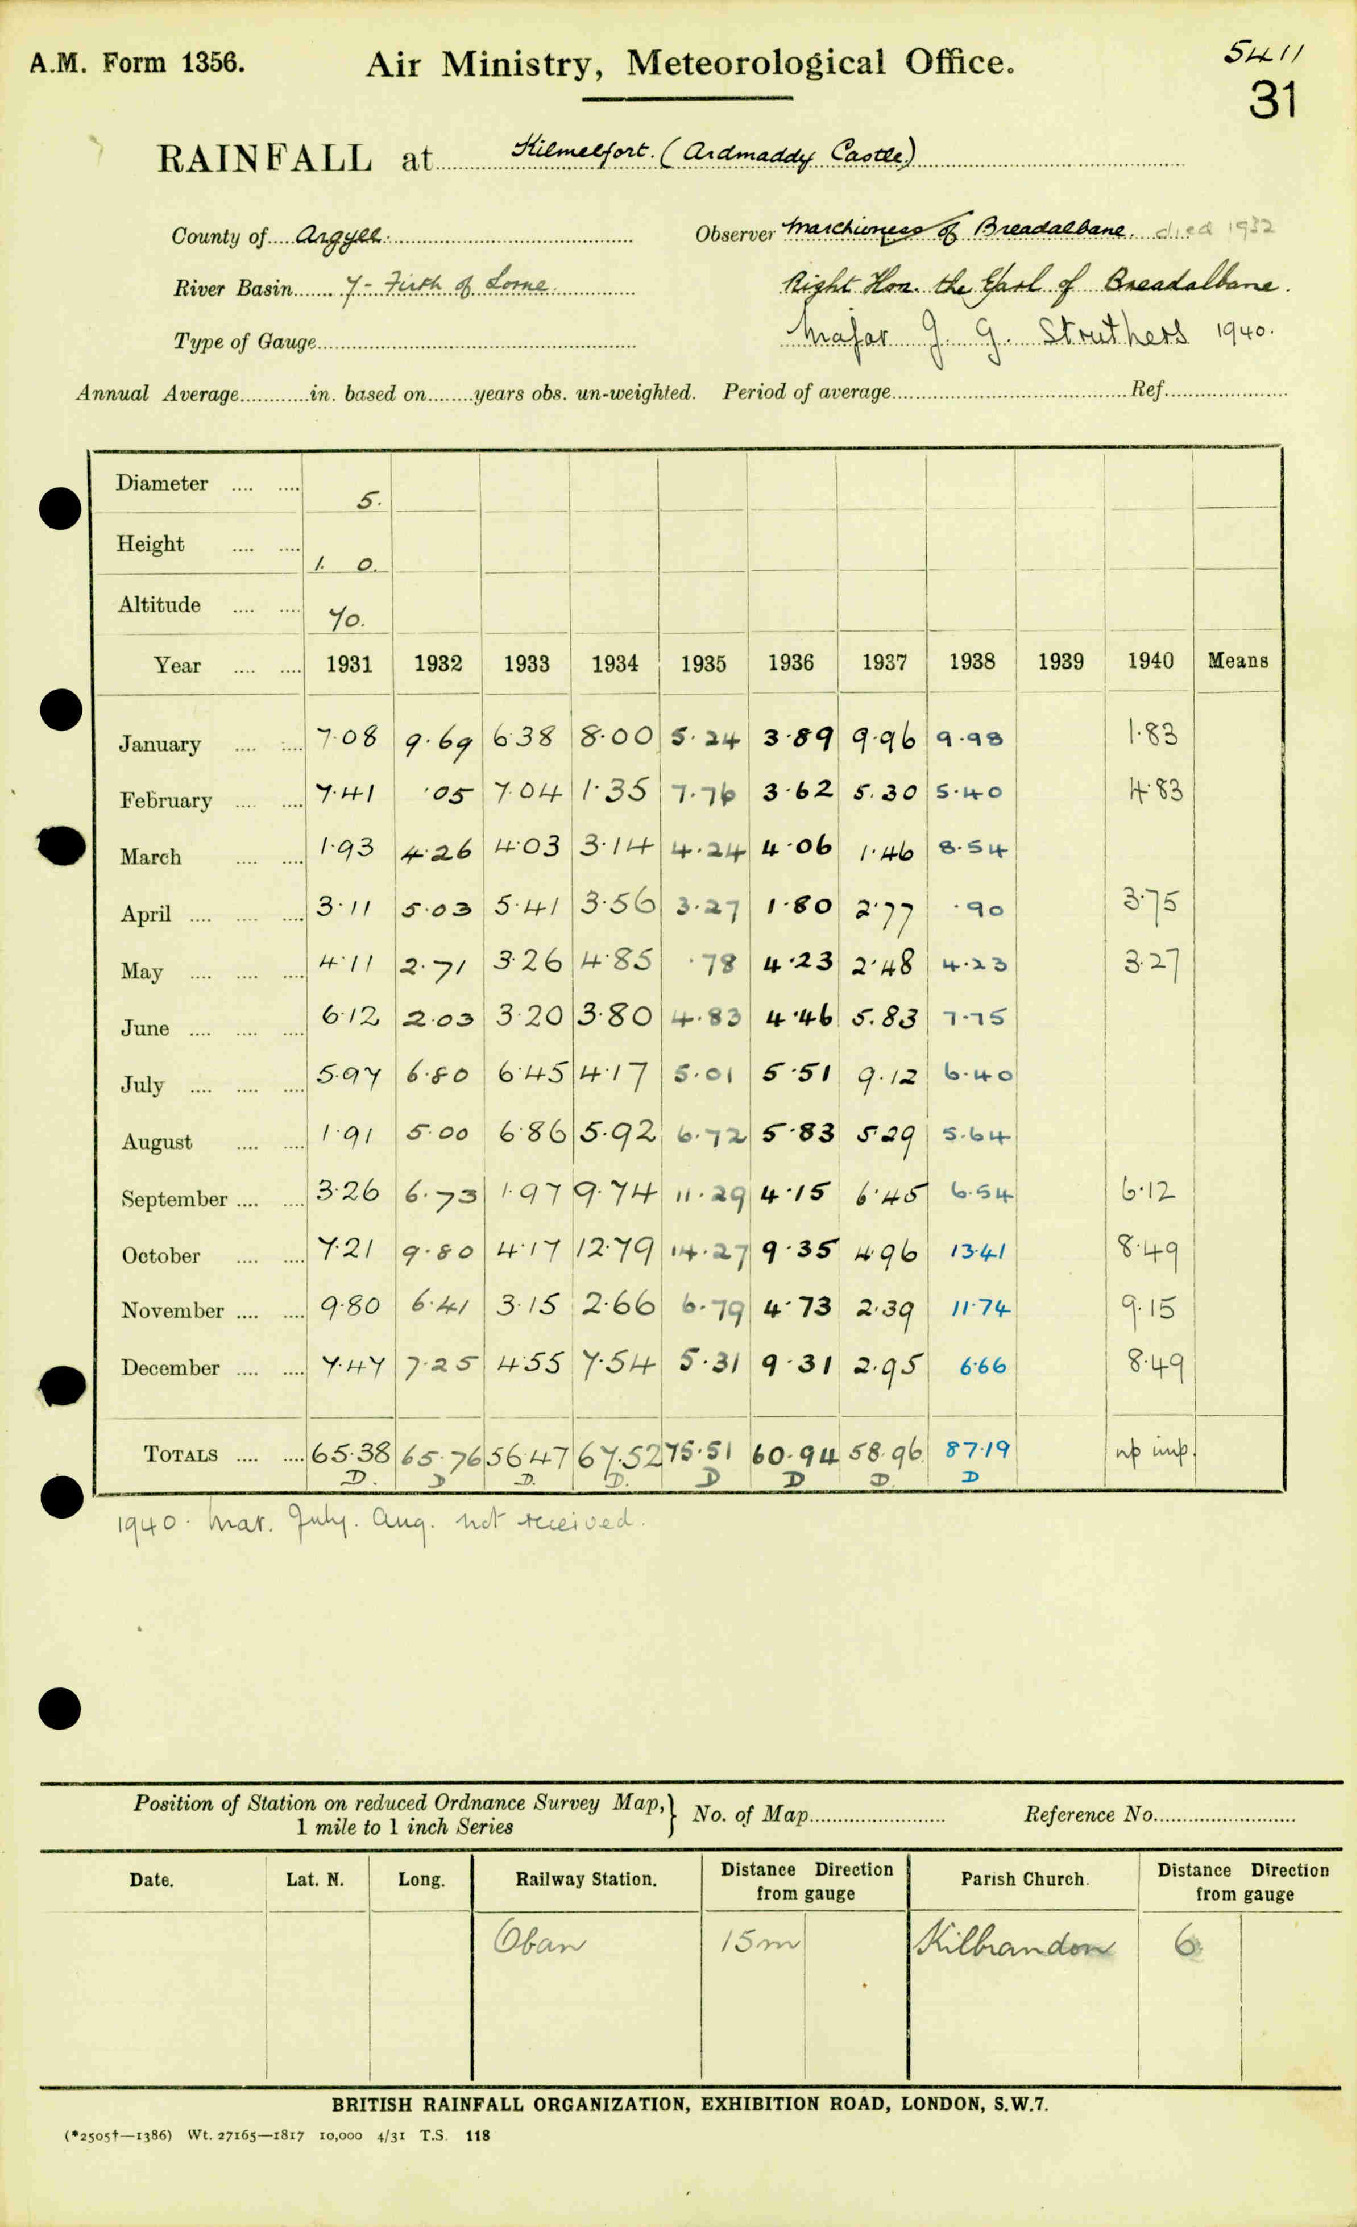 A.M. Form 1356. Air Ministry, Meteorological Office. 5411
31
RAINFALL at Kilmelfort. (Ardmaddy Castle)
County of Argyll. Observer Marchioness of Breadalbane. died 1932
River Basin 7- Firth of Lorne Right Hon. the Earl of Breadalbane.
Type of Gauge Major J. G. Struthers 1940.
Annual Average in. based on years obs. un-weighted. Period of average Ref.
Diameter 5.
Height 1. 0.
Altitude 70.
Year 1931 1932 1933 1934 1935 1936 1937 1938 1939 1940 Means
January 7.08 9.69 6.38 8.00 5.24 3.89 9.96 9.98 1.83
February 7.41 .05 7.04 1.35 7.76 3.62 5.30 5.40 4.83
March 1.93 4.26 4.03 3.14 4.24 4.06 1.46 8.54
April 3.11 5.03 5.41 3.56 3.27 1.80 2.77 .90 3.75
May 4.11 2.71 3.26 4.85 .78 4.23 2.48 4.23 3.27
June 6.12 2.03 3.20 3.80 4.83 4.46 5.83 7.75
July 5.97 6.80 6.45 4.17 5.01 5.51 9.12 6.40
August 1.91 5.00 6.86 5.92 6.72 5.83 5.29 5.64
September 3.26 6.73 1.97 9.74 11.29 4.15 6.45 6.54 6.12
October 7.21 9.80 4.17 12.79 14.27 9.35 4.96 13.41 8.49
November 9.80 6.41 3.15 2.66 6.79 4.73 2.39 11.74 9.15
December 7.47 7.25 4.55 7.54 5.31 9.31 2.95 6.66 8.49
TOTALS 65.38 65.76 56.47 67.52 75.51 60.94 58.96 87.19 np imp.
D. D D. D. D D D. D
1940. Mar. July. Aug. not received.
Position of Station on reduced Ordnance Survey Map, } No. of Map Reference No.
1 mile to 1 inch Series
Date. Lat. N. Long. Railway Station. Distance Direction from gauge Parish Church. Distance Direction from gauge
Oban 15m Kilbrandon 6
BRITISH RAINFALL ORGANIZATION, EXHIBITION ROAD, LONDON, S.W.7.
(*2505†—1386) Wt. 27165—1817 10,000 4/31 T.S. 118